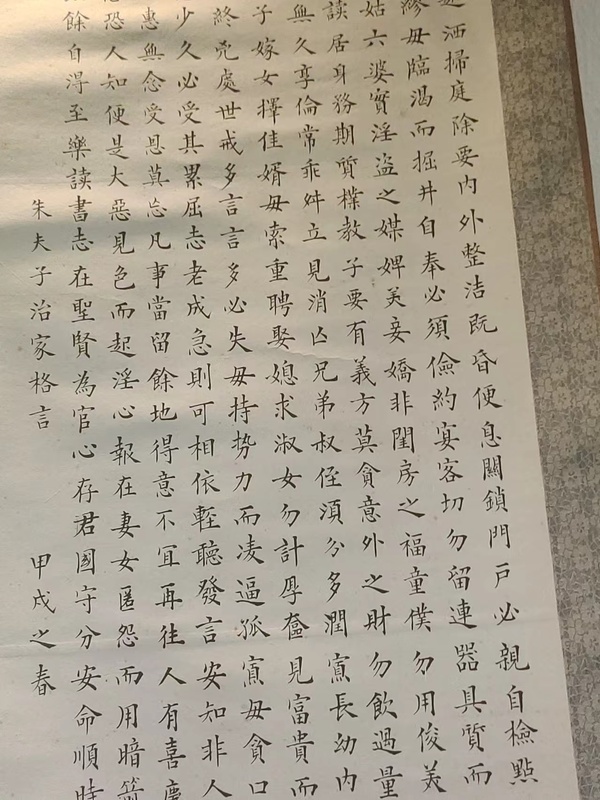 洒掃庭除要内外整洁既昏便息關鎖門戸必親自檢點
繆毋臨渴而掘井自奉必須儉約宴客切勿留連器具質而
姑六婆實淫盗之媒婢美妾嬌非閨房之福童僕勿用俊美
讀居身務期質樸教子要有義方莫貪意外之財勿飲過量
無久享倫常乖舛立見消亾兄弟叔侄湏分多潤寡長幼内
子嫁女擇佳婿毋索重聘娶媳求淑女勿計厚奩見富貴而
終凶處世戒多言言多必失毋持势力而凌逼孤寡毋貪口
少久必受其累屈志老成急則可相依輊聽發言安知非人
惠無念受恩莫忘凡事當留餘地得意不冝再往人有喜慶
恐人知便是大惡見色而起淫心報在妻女匿怨而用暗箭
餘自淂至樂读書志在聖賢為官心存君國守分安命順時
朱夫子治家格言
甲戍之春